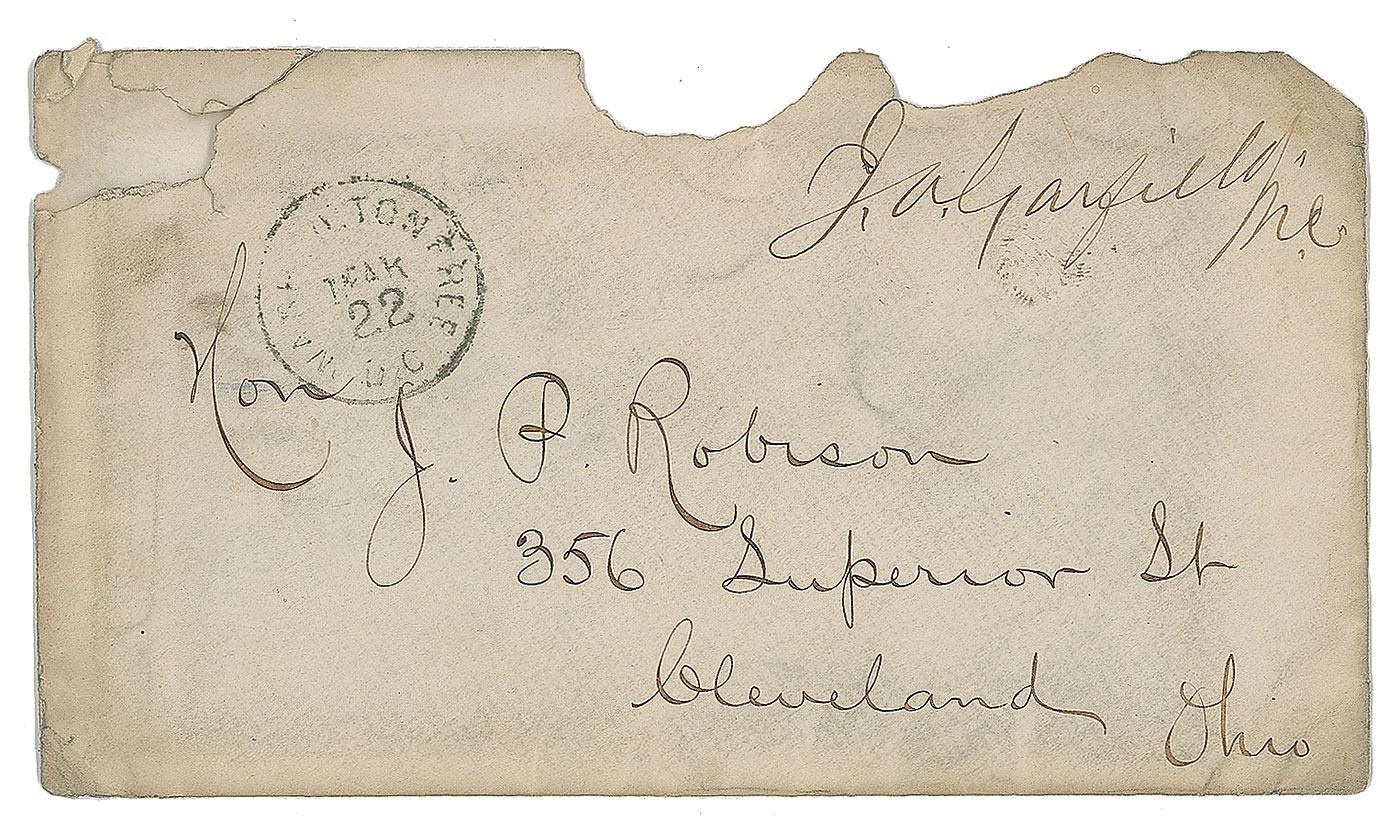 J. A. Garfield M.C.
WASHINGTON FREE
MAR
22
D.C.
Hon J. P. Robison
356 Superior St
Cleveland Ohio